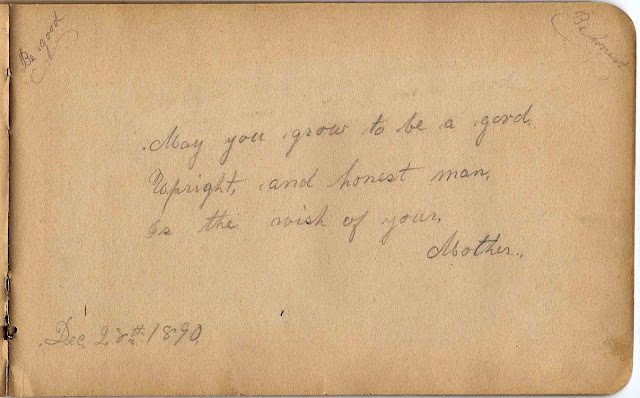 Be good
Be honest
May you grow to be a good,
Upright, and honest man,
Is the wish of your,
Mother.,
Dec 28th 1890